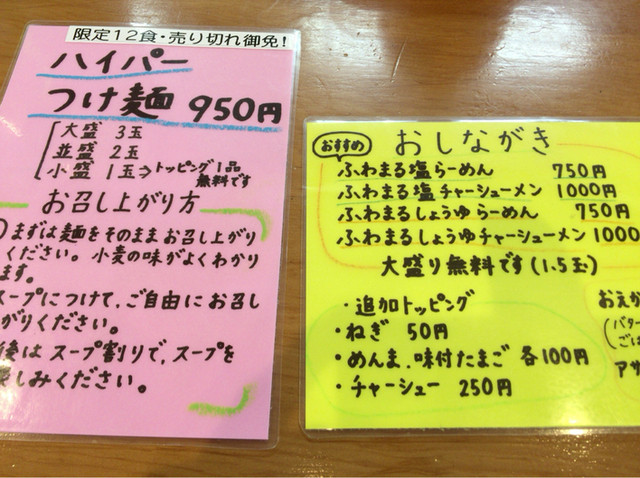 限定12食・売り切れ御免!
ハイパー
つけ麺 950円
大盛 3玉
並盛 2玉
小盛 1玉⇒トッピング1品
無料です
お召し上がり方
まずは麺をそのままお召し上がり
ください。小麦の味がよくわかり
ます。
スープにつけて、ご自由にお召し
がりください。
後はスープ割りで、スープを
しみください。
おすすめ
おしながき
ふわまる塩らーめん 750円
ふわまる塩チャーシューメン 1000円
ふわまるしょうゆらーめん 750円
ふわまるしょうゆチャーシューメン 1000
大盛り無料です(1.5玉)
・追加トッピング
・ねぎ 50円
・めんま、味付たまご 各100円
・チャーシュー 250円
おえか
(バター
ごは
アサ